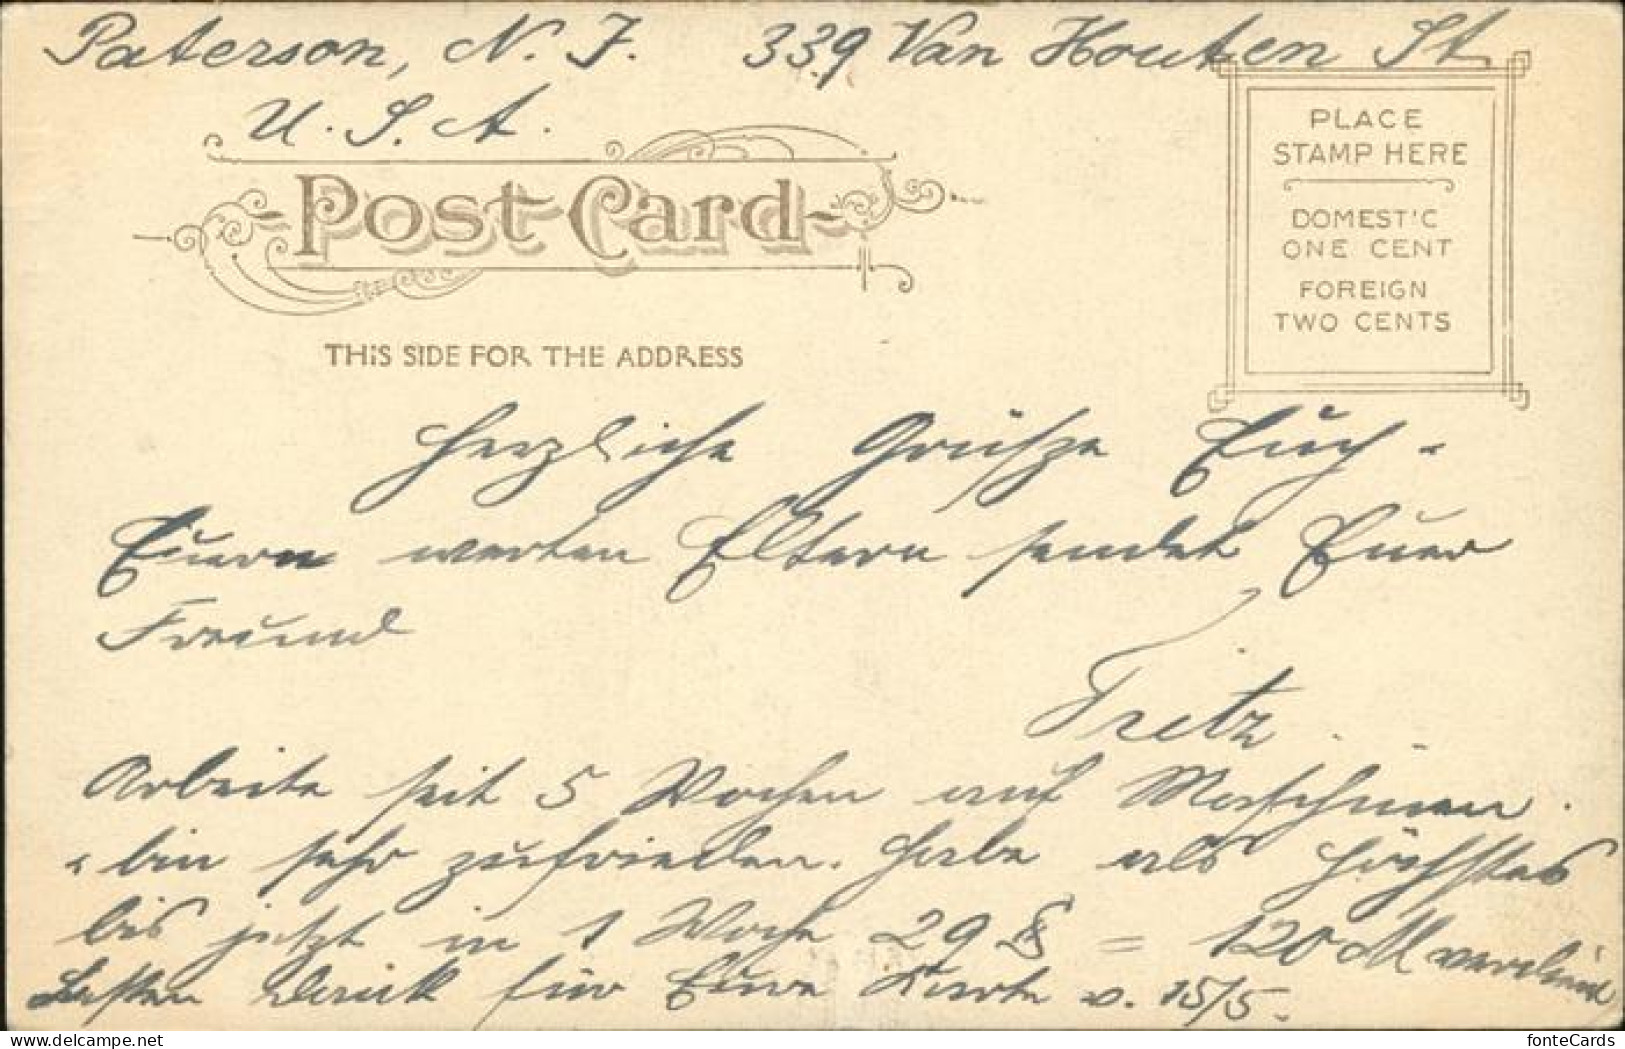 Paterson, N. J. 339 Van Houten St.
U. S. A.
Post Card
THIS SIDE FOR THE ADDRESS
PLACE
STAMP HERE
DOMESTIC
ONE CENT
FOREIGN
TWO CENTS
Herzliche Grüße Euch -
Euern werten Eltern sendet Euer
Freund
Fritz.
Arbeite seit 5 Wochen auf Maschinen.
bin sehr zufrieden. Habe als höchstes
bis jetzt in 1 Woche 29 $ = 120 M verdient
Besten Dank für Eure Karte v. 15/5.
fonteCards